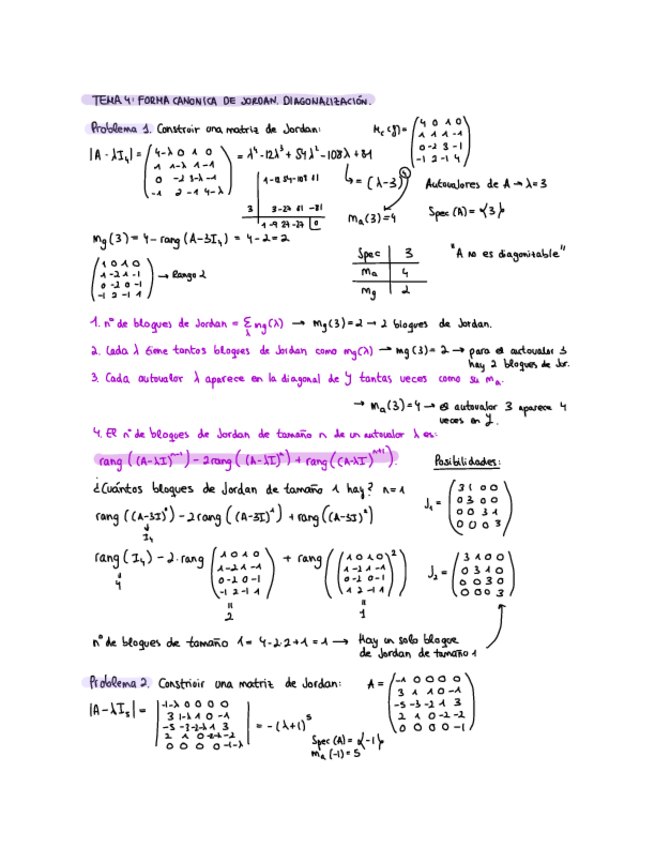 TEMA 4: FORMA CANONICA DE JORDAN. DIAGONALIZACIÓN.
Problema 1. Construir una matriz de Jordan:
M_c(f) = (4 0 1 0
1 1 1 -1
0 -2 3 -1
-1 2 -1 4)
|A - λI₄| = (4-λ 0 1 0
1 1-λ 1 -1
0 -2 3-λ -1
-1 2 -1 4-λ) = λ⁴ - 12λ³ + 54λ² - 108λ + 81
1 -12 54 -108 81
3 3 -27 81 -81
1 -9 27 -27 0
= (λ-3)⁴
m_a(3) = 4
Autovalores de A → λ = 3
Spec(A) = {3}
m_g(3) = 4 - rang(A-3I₄) = 4 - 2 = 2
(1 0 1 0
1 -2 1 -1
0 -2 0 -1
-1 2 -1 1) → Rango 2
Spec 3
m_a 4
m_g 2
"A no es diagonizable"
1. nº de bloques de Jordan = Σ_λ m_g(λ) → m_g(3) = 2 → 2 bloques de Jordan.
2. Cada λ tiene tantos bloques de Jordan como m_g(λ) → m_g(3) = 2 → para el autovalor 3
hay 2 bloques de Jor.
3. Cada autovalor λ aparece en la diagonal de J tantas veces como su m_a.
→ m_a(3) = 4 → el autovalor 3 aparece 4
veces en J.
4. El nº de bloques de Jordan de tamaño n de un autovalor λ es:
rang((A-λI)ⁿ⁻¹) - 2rang((A-λI)ⁿ) + rang((A-λI)ⁿ⁺¹).
Posibilidades:
¿Cuántos bloques de Jordan de tamaño 1 hay? n=1
J₁ = (3 1 0 0
0 3 0 0
0 0 3 1
0 0 0 3)
rang((A-3I)⁰) - 2rang((A-3I)¹) + rang((A-3I)²)
I₄
rang(I₄) - 2·rang (1 0 1 0
1 -2 1 -1
0 -2 0 -1
-1 2 -1 1) + rang ((1 0 1 0
1 -2 1 -1
0 -2 0 -1
1 2 -1 1)²)
4
=
2
=
1
J₂ = (3 1 0 0
0 3 1 0
0 0 3 0
0 0 0 3)
nº de bloques de tamaño 1 = 4 - 2·2 + 1 = 1 → Hay un solo bloque
de Jordan de tamaño 1
Problema 2. Construir una matriz de Jordan: A = (-1 0 0 0 0
3 1 1 0 -1
-5 -3 -2 1 3
2 1 0 -2 -2
0 0 0 0 -1)
|A - λI₅| = |-1-λ 0 0 0 0
3 1-λ 1 0 -1
-5 -3 -2-λ 1 3
2 1 0 -2-λ -2
0 0 0 0 -1-λ| = -(λ+1)⁵
Spec(A) = {-1}
m_a(-1) = 5